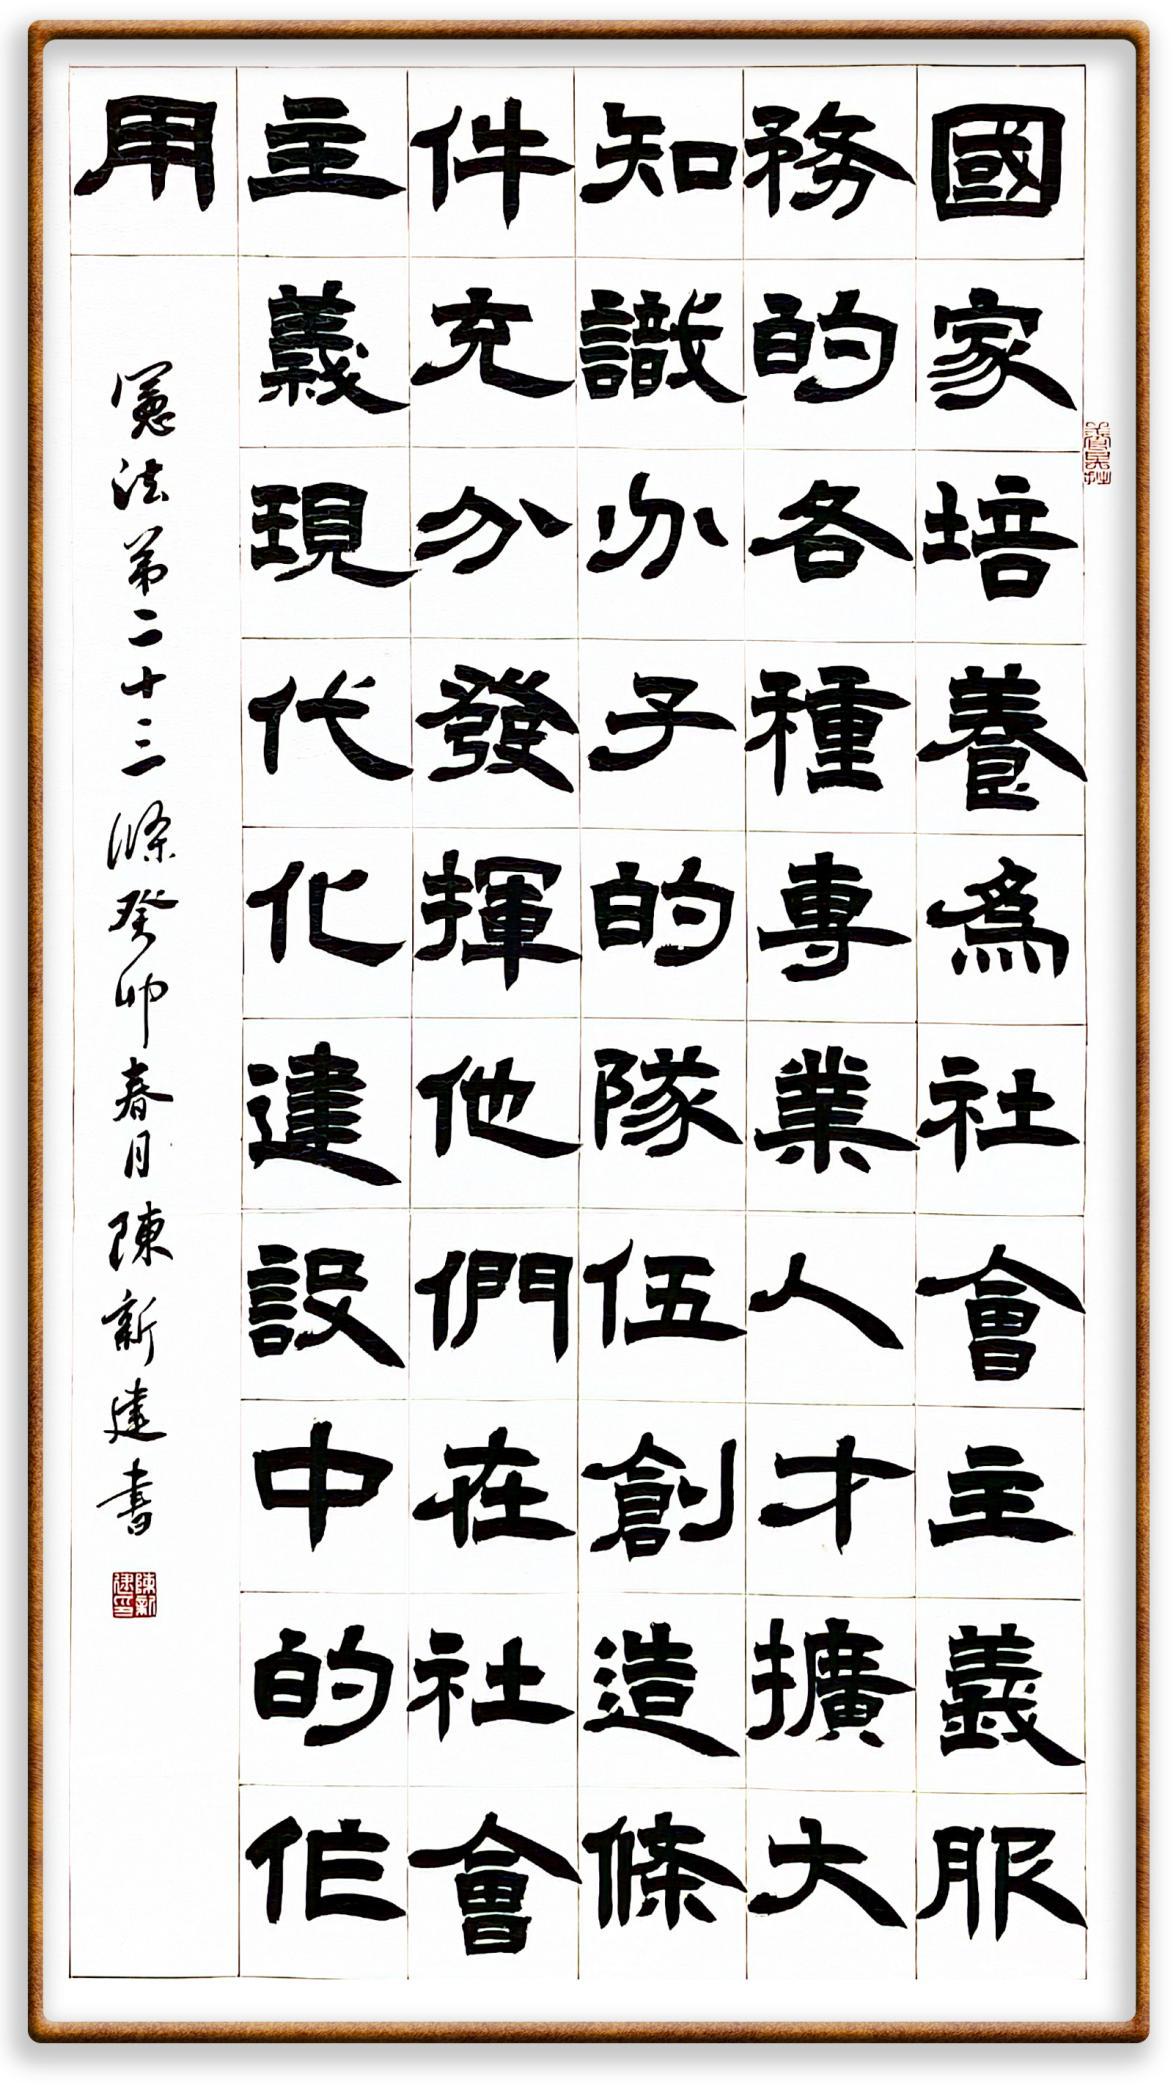 國家培養為社會主義服
務的各種專業人才擴大
知識分子的隊伍創造條
件充分發揮他們在社會
主義現代化建設中的作
用
憲法第二十三條癸卯春月陳新建書
陳新建印